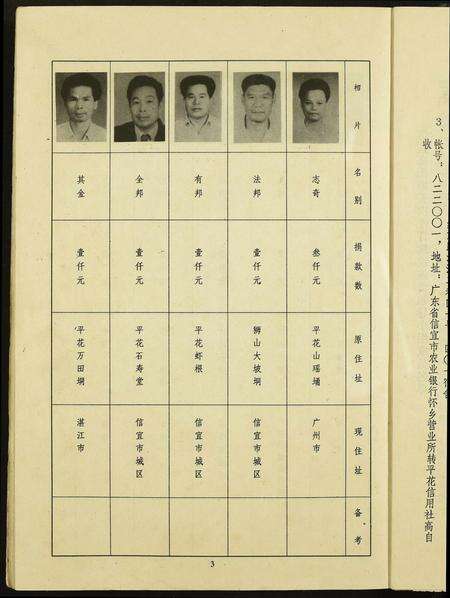 相片
名别
捐款数
原住址
现住址
备考
志奇
叁仟元
平花山瑶埇
广州市
法邦
壹仟元
狮山大坡垌
信宜市城区
有邦
壹仟元
平花虾根
信宜市城区
全邦
壹仟元
平花石寿堂
信宜市城区
其金
壹仟元
平花万田垌
湛江市
3
3、帐号：八二二〇〇一，地址：广东省信宜市农业银行怀乡营业所转平花信用社高自
收